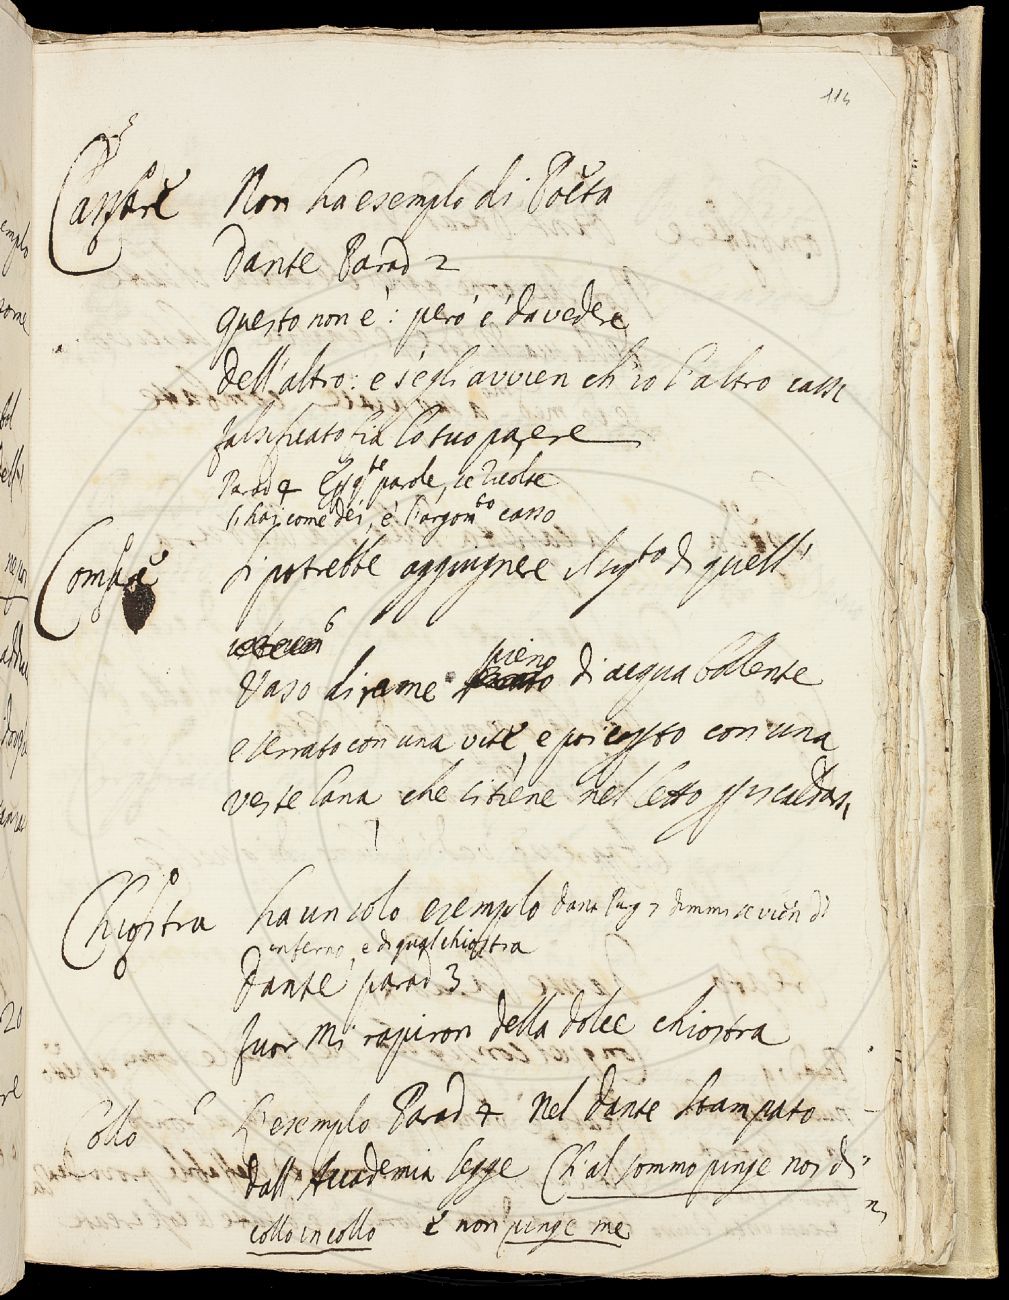 114
Cassare Non ha esemplo di Poeta
Dante Parad 2
questo non è: però è da vedere
dell'altro: e s'egli avvien ch'io l'altro cassi
falsificato fia lo tuo parere
Parad 4 E p q.te parole, se ricolte
l'hai come dei, è l'argom.to casso
si potrebbe aggiugnere il sig.to di quell'
Vaso di rame pieno di acqua bollente
e serrato con una vite, e poi con una
veste lana che si tiene nel letto p iscaldarsi
Chiostra ha un solo esemplo Dant Purg 7 dimmi se vien di
inferno, e di qual chiostra
Dante parad 3
fuor mi rapiron della dolce chiostra
Collo L'esemplo Parad 4 Nel Dante stampato
dall'Accademia legge Ch'al sommo pinge noi di
collo in collo e non pinge me